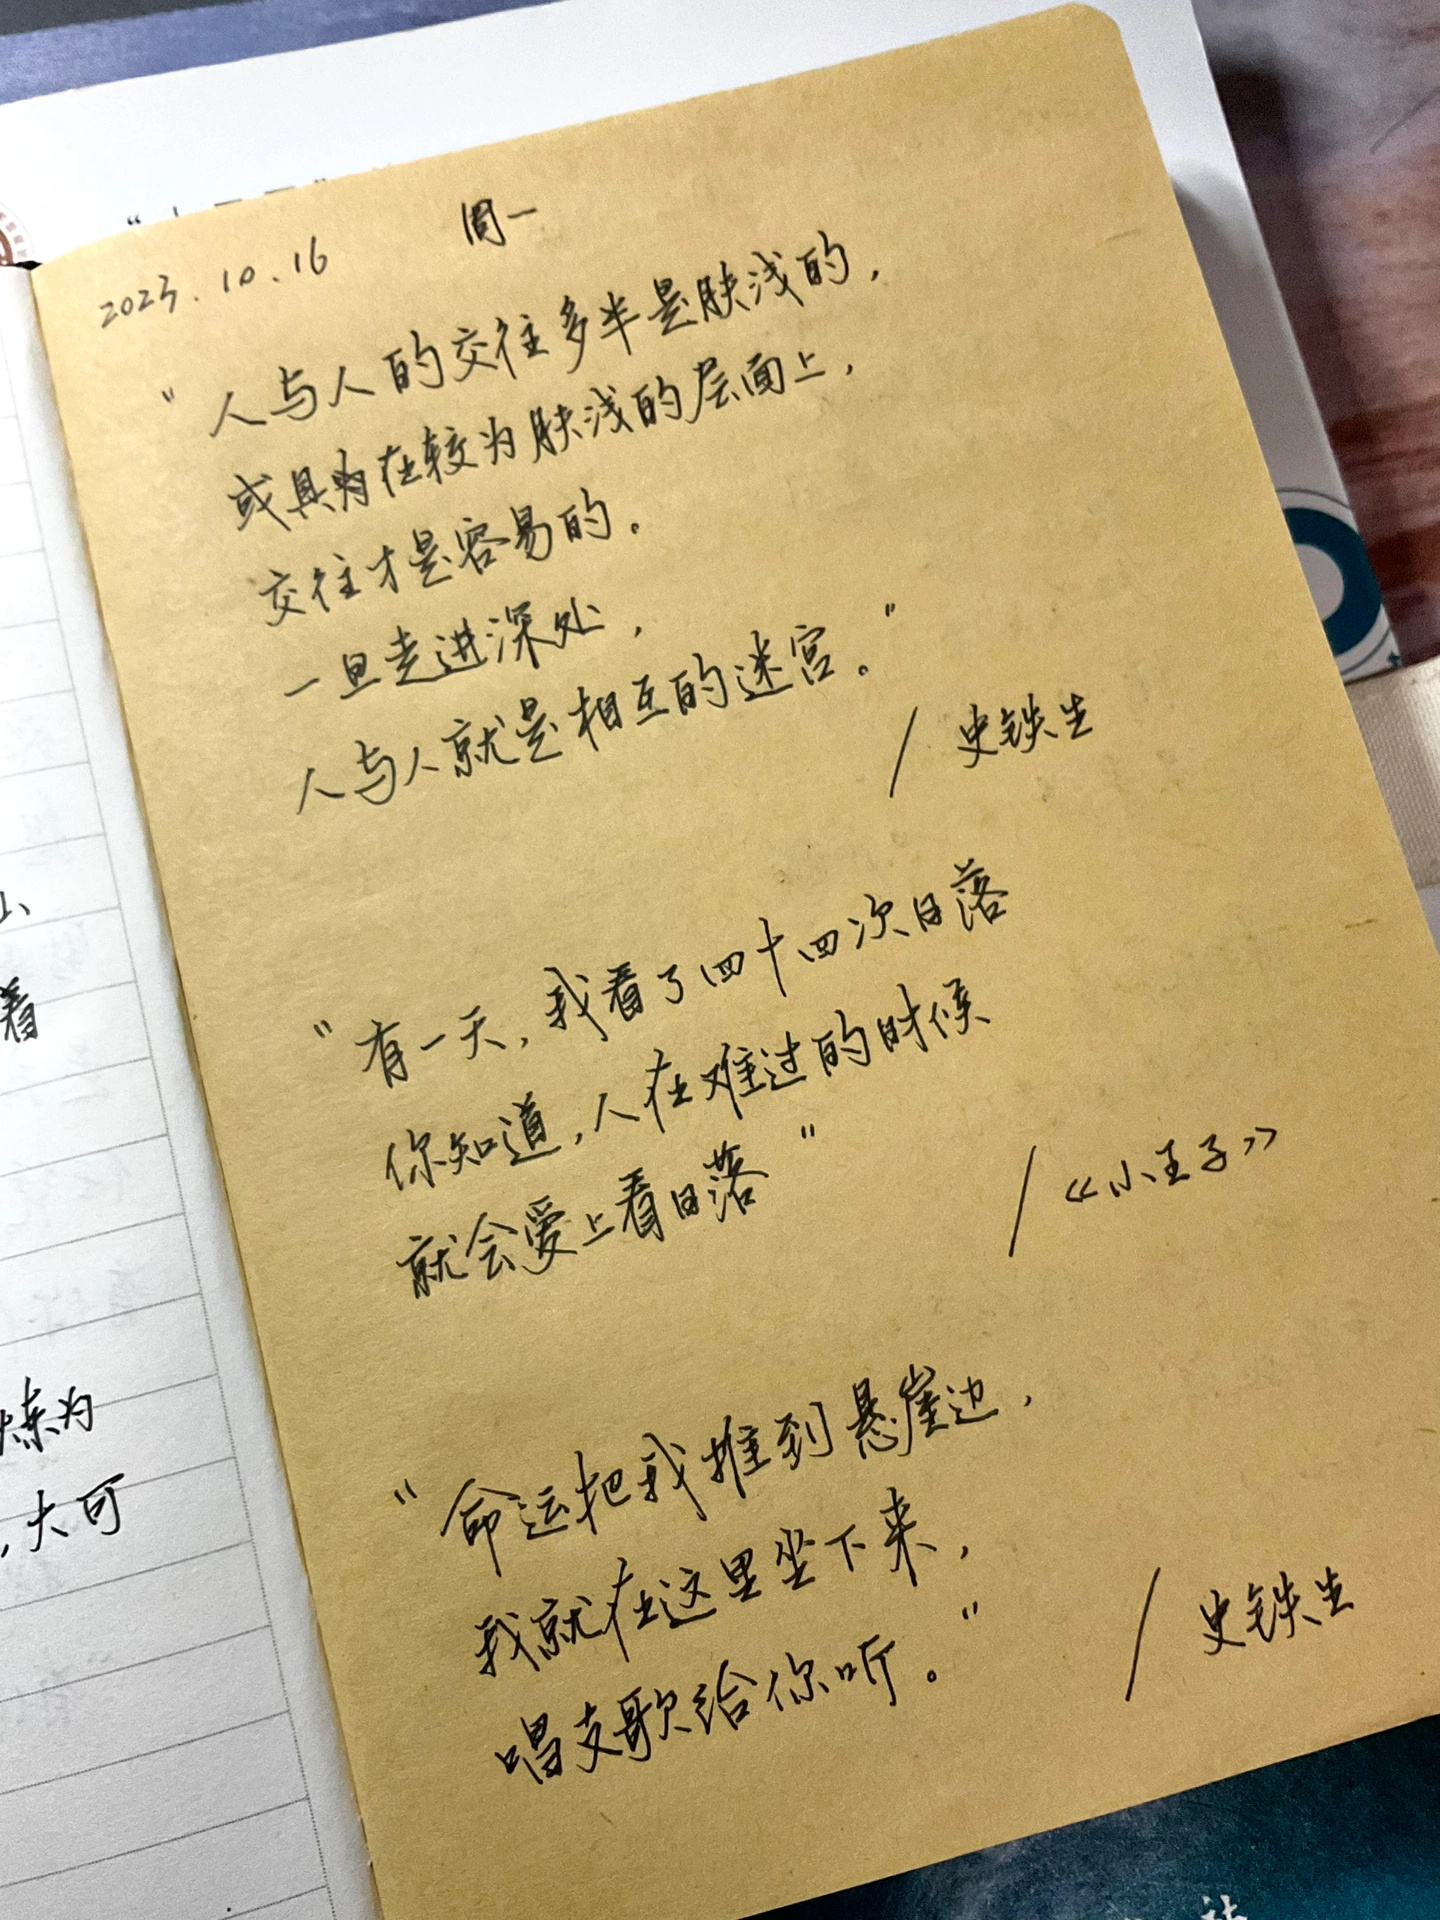 2023.10.16 周一
"人与人的交往多半是肤浅的,
或只有在较为肤浅的层面上,
交往才是容易的。
一旦走进深处,
人与人就是相互的迷宫。"
/ 史铁生
"有一天,我看了四十四次日落
你知道,人在难过的时候
就会爱上看日落"
/《小王子》
"命运把我推到悬崖边,
我就在这里坐下来,
唱支歌给你听。"
/ 史铁生
着
炼为
,大可